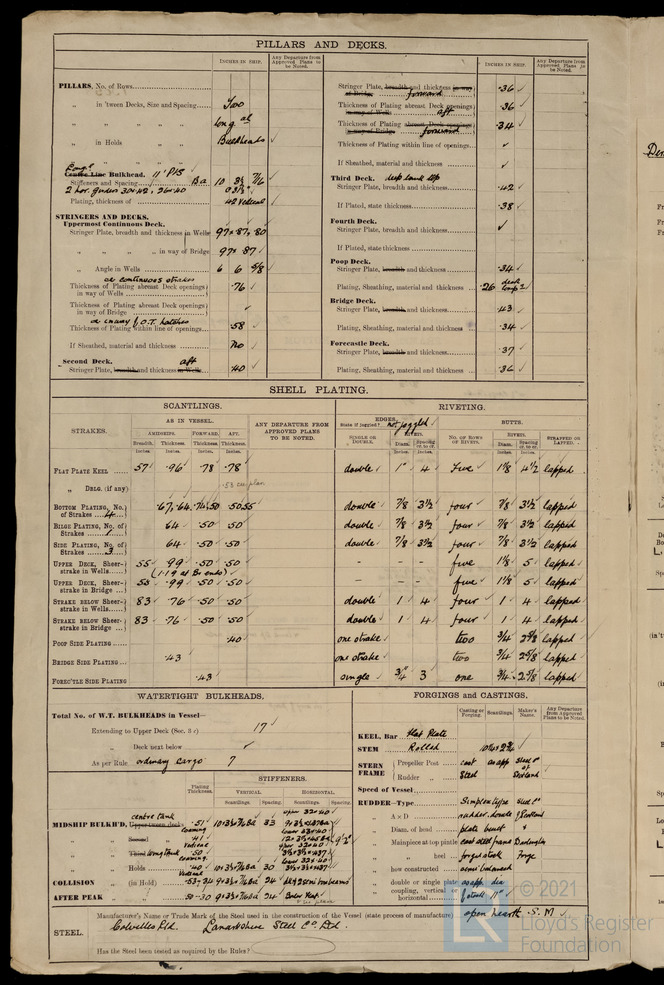 PILLARS AND DECKS.
INCHES IN SHIP.
Any Departure from Approved Plans to be Noted.
INCHES IN SHIP.
Any Departure from Approved Plans to be Noted.
PILLARS, No. of Rows
„ in 'tween Decks, Size and Spacing Two
„ „ „ „ long al
„ in Holds „ „ Bulkheads
Centre Line Bulkhead. 11' P/S
Stiffeners and Spacing Ba 10 3½ 7/16
Plating, thickness of .42
STRINGERS AND DECKS.
Uppermost Continuous Deck.
Stringer Plate, breadth and thickness in Wells 97 × .87 × .80
„ „ „ „ in way of Bridge 97 × .87
„ Angle in Wells 6 6 5/8
or continuous strakes
Thickness of Plating abreast Deck openings in way of Wells .76
Thickness of Plating abreast Deck openings in way of Bridge
or inway of O.T. hatches
Thickness of Plating within line of openings .58
If Sheathed, material and thickness no
Second Deck. aft
Stringer Plate, breadth and thickness in Wells .40
Stringer Plate, breadth and thickness in way of Bridge forward .36
Thickness of Plating abreast Deck openings in way of Wells aft .36
Thickness of Plating abreast Deck openings in way of Bridge forward .34
Thickness of Plating within line of openings
If Sheathed, material and thickness
Third Deck. deep tank top
Stringer Plate, breadth and thickness .42
If Plated, state thickness .38
Fourth Deck.
Stringer Plate, breadth and thickness
If Plated, state thickness
Poop Deck.
Stringer Plate, breadth and thickness .34
Plating, Sheathing, material and thickness .26
Bridge Deck.
Stringer Plate, breadth and thickness .43
Plating, Sheathing, material and thickness .34
Forecastle Deck.
Stringer Plate, breadth and thickness .37
Plating, Sheathing, material and thickness .36
SHELL PLATING.
SCANTLINGS.
RIVETING.
STRAKES.
AS IN VESSEL.
AMIDSHIPS. FORWARD. AFT.
Breadth. Thickness. Thickness. Thickness.
ANY DEPARTURE FROM APPROVED PLANS TO BE NOTED.
EDGES.
State if joggled? not joggled
SINGLE OR DOUBLE.
RIVETS.
Diam. Spacing cr. to cr.
BUTTS.
NO. OF ROWS OF RIVETS.
RIVETS.
Diam. Spacing cr. to cr.
STRAPPED OR LAPPED.
FLAT PLATE KEEL 57 .96 .78 .78 double 1" 4 Five 1⅛ 4½ lapped
„ DBLG. (if any)
BOTTOM PLATING, No. of Strakes 4 .67, .64 .74, .50 .50 .55 double 7/8 3½ four 7/8 3½ lapped
BILGE PLATING, No. of Strakes 1 .64 .50 .50 double 7/8 3½ four 7/8 3½ lapped
SIDE PLATING, No. of Strakes 3 .64 .50 .50 double 7/8 3½ four 7/8 3½ lapped
UPPER DECK, Sheerstrake in Wells 55 .99 .50 .50 - - five 1⅛ 5 lapped
(1.19 at Br ends)
UPPER DECK, Sheerstrake in Bridge 55 .99 .50 .50 - - five 1⅛ 5 lapped
STRAKE BELOW Sheerstrake in Wells 83 .76 .50 .50 double 1 4 four 1 4 lapped
STRAKE BELOW Sheerstrake in Bridge 83 .76 .50 .50 double 1 4 four 1 4 lapped
POOP SIDE PLATING .40 one strake two ¾ 2⅝ lapped
BRIDGE SIDE PLATING .43 one strake two ¾ 2⅝ lapped
FOREC'TLE SIDE PLATING .43 single ¾ 3 one ¾ 2⅝ lapped
WATERTIGHT BULKHEADS.
Total No. of W.T. BULKHEADS in Vessel—
Extending to Upper Deck (Sec. 3 c) 17
„ Deck next below
As per Rule ordinary cargo 7
Plating Thickness.
STIFFENERS.
VERTICAL. HORIZONTAL.
Scantlings. Spacing. Scantlings. Spacing.
centre tank
MIDSHIP BULKH'D, Upper tween decks .51 10×3½×7/16 Ba 33
„ Second „ .41
„ Third wing tank .50
„ Holds .40 10×3½×7/16 Ba 30
COLLISION „ (in Hold) .53-.34 9×3½×7/16 Ba 24
AFTER PEAK „ „ .50-.30 9×3½×7/16 Ba 24
FORGINGS and CASTINGS.
Casting or Forging. Scantlings. Maker's Name. Any Departure from Approved Plans to be Noted.
KEEL, Bar Flat Plate
STEM Rolled
STERN FRAME
Propeller Post cast as app Steel Co of Scotland
Rudder „ Steel
Speed of Vessel
RUDDER—Type Simplex type Steel Co
„ A × D rudder, double of Scotland
„ Diam. of head plate
Mainpiece at top pintle cast steel frame Darlington
„ heel forged stock Forge
„ how constructed
„ double or single plate as app
„ coupling, vertical or horizontal
STEEL.
Manufacturer's Name or Trade Mark of the Steel used in the construction of the Vessel (state process of manufacture) open hearth S.M
Colvilles Ltd. Lanarkshire Steel Co Ltd.
Has the Steel been tested as required by the Rules?
© 2021
Lloyd's Register
Foundation